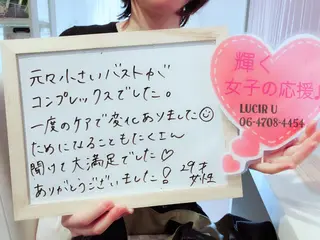 元々小さいバストが
コンプレックスでした。
一度のケアで変化ありました☺
ためになることもたくさん
聞けて大満足でした♡
ありがとうございました!
29才
女性
輝く
女子の応援
LUCIR U
06-4708-4454